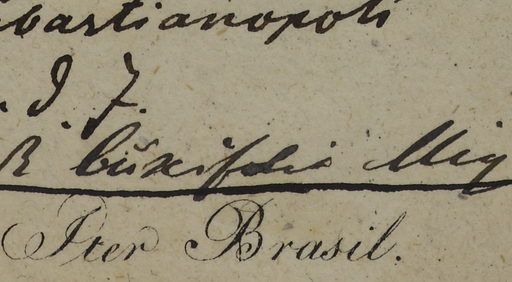 bastianopoli
. d. 7.
R buxifolia Miq
Iter Brasil.